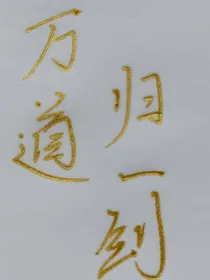 万道
归一剑